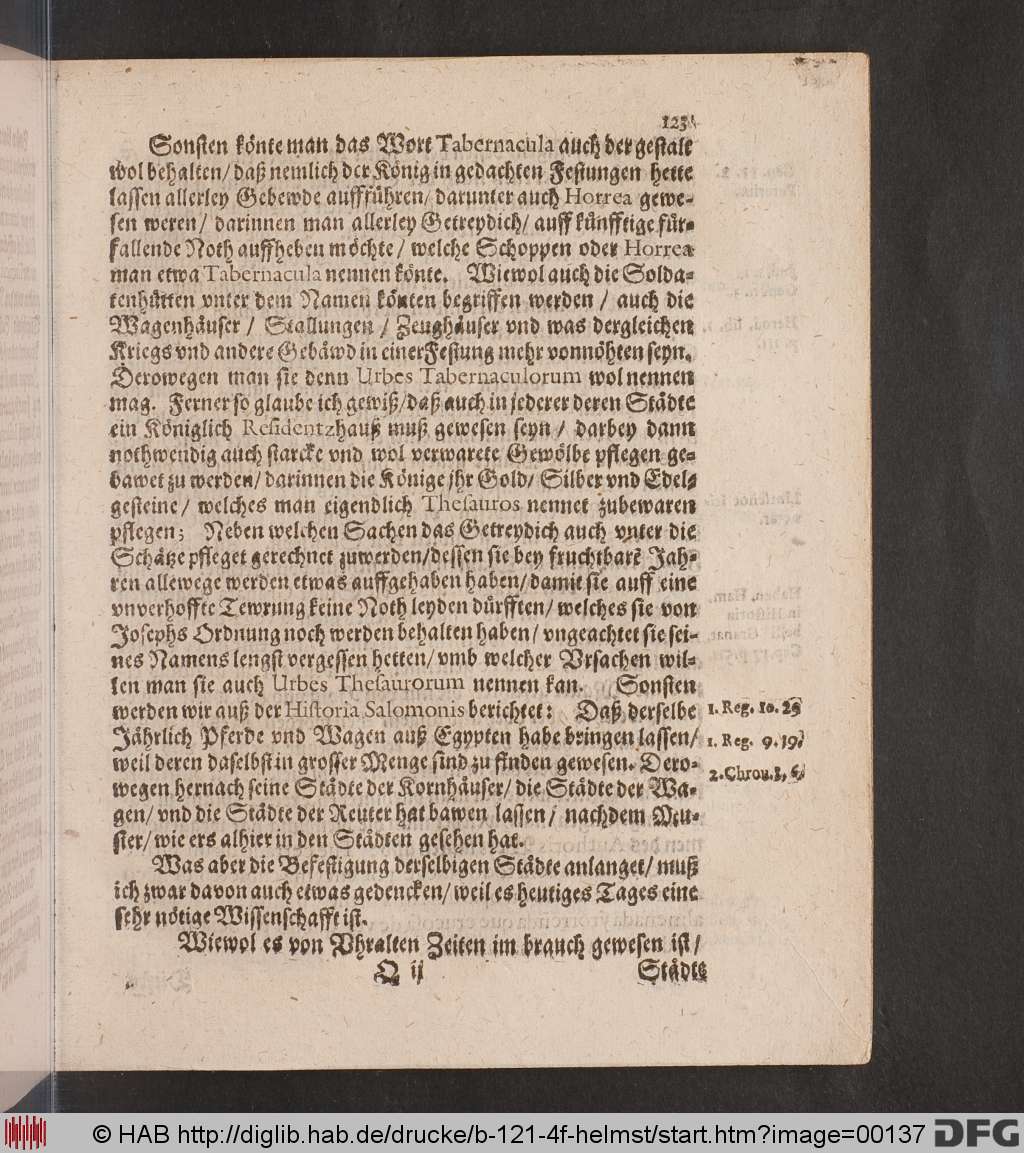 123
Sonsten könte man das Wort Tabernacula auch der gestalt
wol behalten/ daß nemlich der König in gedachten Festungen hette
lassen allerley Gebewde auffführen/ darunter auch Horrea gewe-
sen weren/ darinnen man allerley Getreydich/ auff künfftige für-
fallende Noth auffheben möchte/ welche Schoppen oder Horrea
man etwa Tabernacula nennen könte. Wiewol auch die Solda-
tenhütten vnter dem Namen könten begriffen werden / auch die
Wagenhäuser / Stallungen / Zeughäuser vnd was dergleichen
Kriegs vnd andere Gebäwd in einer Festung mehr vonnöhten seyn.
Derowegen man sie denn Urbes Tabernaculorum wol nennen
mag. Ferner so glaube ich gewiß/ daß auch in jederer deren Städte
ein Königlich Residentzhauß muß gewesen seyn / darbey dann
nothwendig auch starcke vnd wol verwarete Gewölbe pflegen ge-
bawet zu werden/ darinnen die Könige jhr Gold/ Silber vnd Edel-
gesteine / welches man eigendlich Thesauros nennet zubewaren
pflegen; Neben welchen Sachen das Getreydich auch vnter die
Schätze pfleget gerechnet zuwerden/ dessen sie bey fruchtbarē Jah-
ren allewege werden etwas auffgehaben haben/ damit sie auff eine
vnverhoffte Tewrung keine Noth leyden dürfften/ welches sie von
Josephs Ordnung noch werden behalten haben/ vngeachtet sie sei-
nes Namens lengst vergessen hetten/ vmb welcher Vrsachen wil-
len man sie auch Urbes Thesaurorum nennen kan. Sonsten
werden wir auß der Historia Salomonis berichtet: Daß derselbe
1. Reg. 10. 29
Jährlich Pferde vnd Wagen auß Egypten habe bringen lassen/
1. Reg. 9. 19.
weil deren daselbst in grosser Menge sind zu finden gewesen. Dero-
2. Chron. 8, 6.
wegen hernach seine Städte der Kornhäuser/ die Städte der Wa-
gen/ vnd die Städte der Reuter hat bawen lassen / nachdem Mu-
ster/ wie ers alhier in den Städten gesehen hat.
Was aber die Befestigung derselbigen Städte anlanget/ muß
ich zwar davon auch etwas gedencken/ weil es heutiges Tages eine
sehr nötige Wissenschafft ist.
Wiewol es von Vhralten Zeiten im brauch gewesen ist /
Q ij
Städte
© HAB http://diglib.hab.de/drucke/b-121-4f-helmst/start.htm?image=00137
DFG